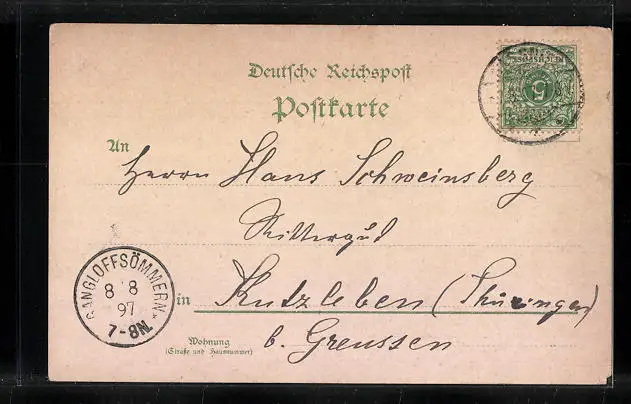 Deutsche Reichspost
Postkarte
An
Herrn Hans Schweinsberg
Rittergut
in Kutzleben (Thüringen)
b. Greussen
Wohnung
(Straße und Hausnummer)
GANGLOFFSÖMMERN
8 8
97
7-8N.
5